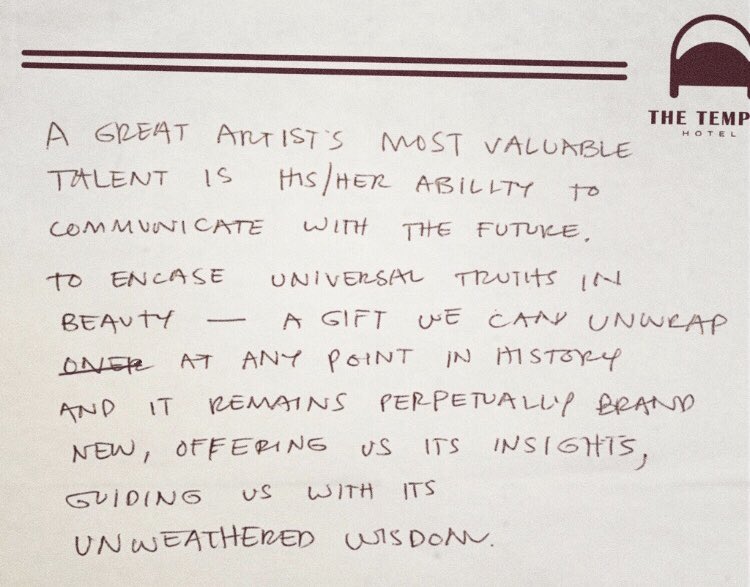 THE TEMP
HOTEL
A GREAT ARTIST'S MOST VALUABLE
TALENT IS HIS/HER ABILITY TO
COMMUNICATE WITH THE FUTURE.
TO ENCASE UNIVERSAL TRUTHS IN
BEAUTY — A GIFT WE CAN UNWRAP
OVER AT ANY POINT IN HISTORY
AND IT REMAINS PERPETUALLY BRAND
NEW, OFFERING US ITS INSIGHTS,
GUIDING US WITH ITS
UNWEATHERED WISDOM.